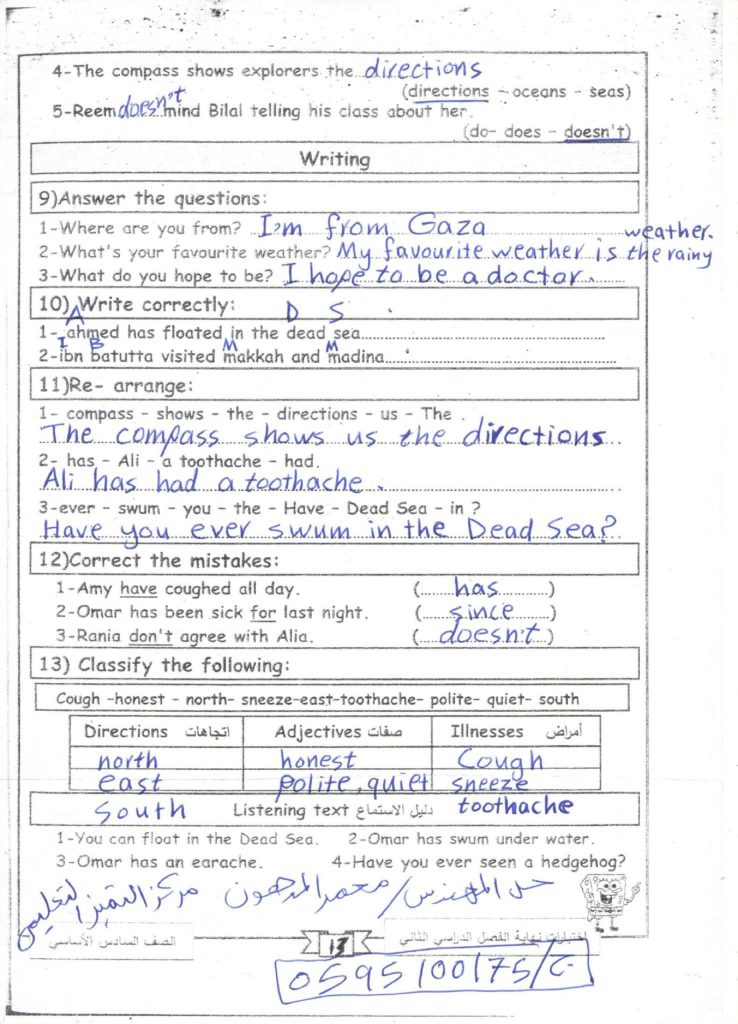 4-The compass shows explorers the directions
(directions - oceans - seas)
5-Reem doesn't mind Bilal telling his class about her.
(do- does - doesn't)
Writing
9)Answer the questions:
1-Where are you from? I'm from Gaza
2-What's your favourite weather? My favourite weather is the rainy weather.
3-What do you hope to be? I hope to be a doctor.
10) Write correctly:
A D S
1- ahmed has floated in the dead sea
I B M M
2-ibn batutta visited makkah and madina
11)Re- arrange:
1- compass - shows - the - directions - us - The .
The compass shows us the directions
2- has - Ali - a toothache - had.
Ali has had a toothache.
3-ever - swum - you - the - Have - Dead Sea - in ?
Have you ever swum in the Dead Sea?
12)Correct the mistakes:
1-Amy have coughed all day. (has)
2-Omar has been sick for last night. (since)
3-Rania don't agree with Alia. (doesn't)
13) Classify the following:
Cough -honest - north- sneeze-east-toothache- polite- quiet- south
Directions اتجاهات Adjectives صفات Illnesses أمراض
north honest Cough
east polite, quiet sneeze
south Listening text دليل الاستماع toothache
1-You can float in the Dead Sea. 2-Omar has swum under water.
3-Omar has an earache. 4-Have you ever seen a hedgehog?
حل المهندس/ محمد المدهون مركز التميز التعليمي
اختبارات نهاية الفصل الدراسي الثاني 13 الصف السادس الأساسي
0595100175/ج